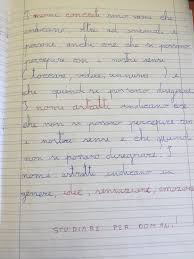 I nomi concreti sono nomi che
indicano oltre ad animali e
persone anche cose che si possono
percepire con i nostri sensi
(toccare, vedere, annusare) e
che quindi si possono disegnare.
I nomi astratti indicano cose
che non si possono percepire con
i nostri sensi e che quindi
non si possono disegnare. I
nomi astratti indicano in
genere, idee, sensazioni, emozioni
STUDIARE PER DOMANI!